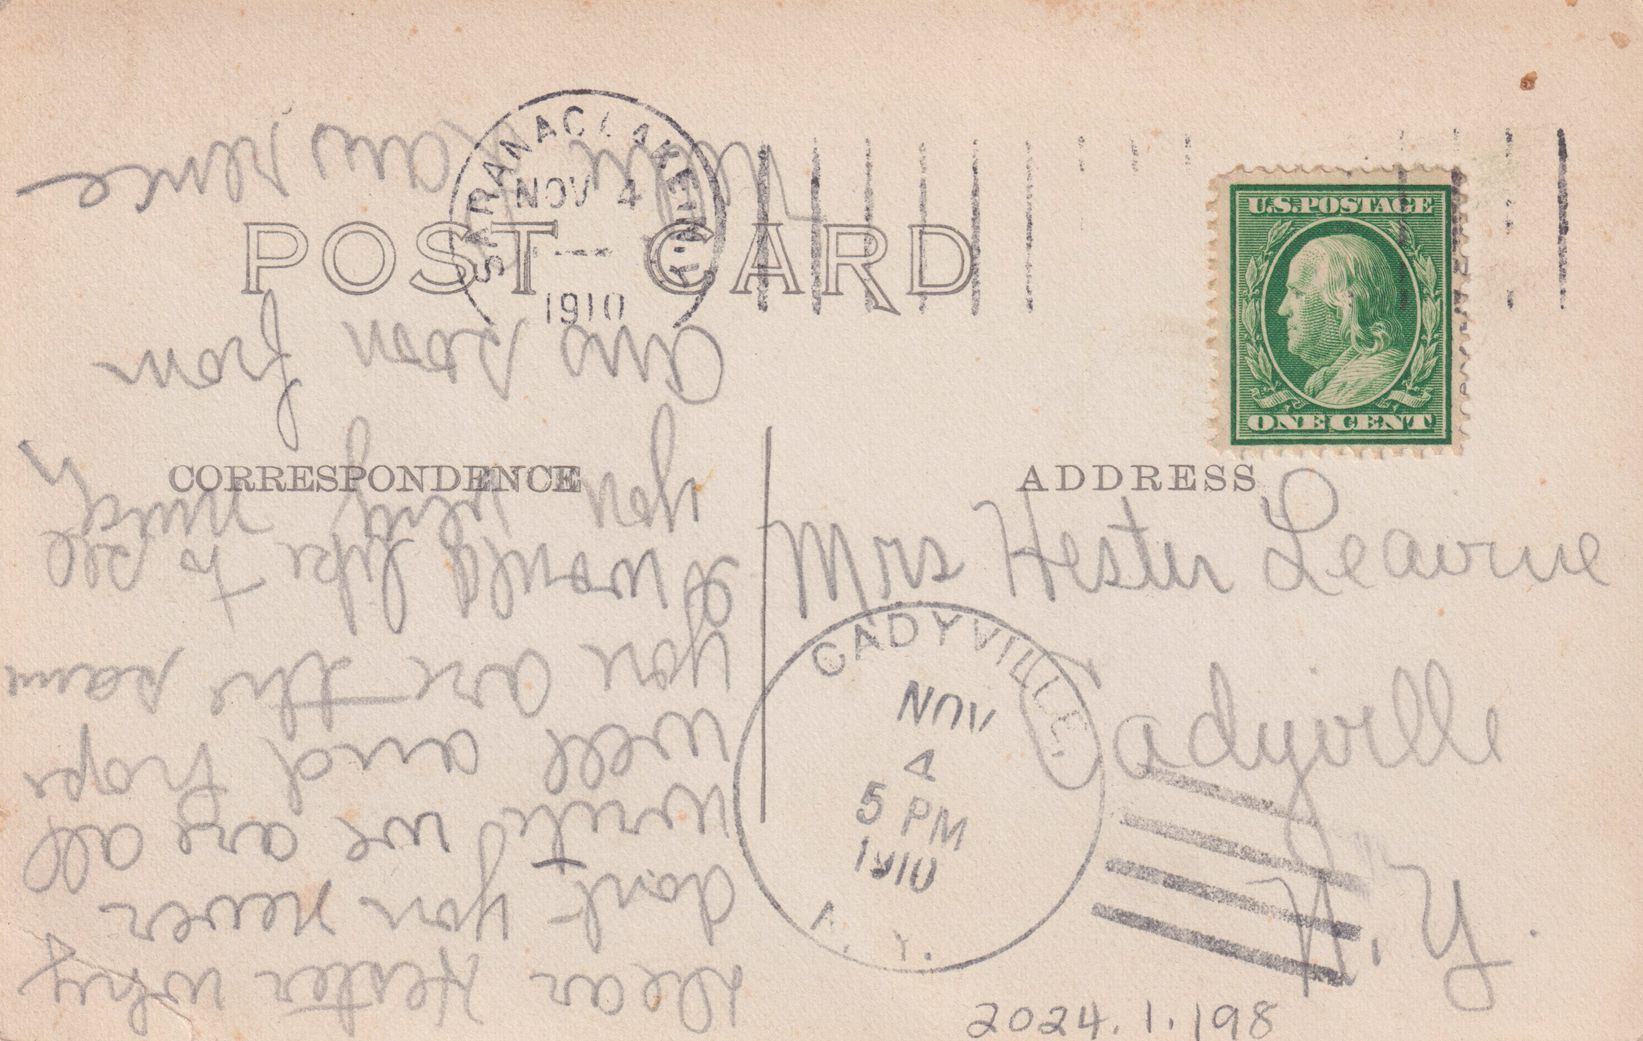 SARANAC LAKE, N.Y.
NOV 4
1910
POST CARD
U.S. POSTAGE
ONE CENT
CORRESPONDENCE
ADDRESS
Mrs Hester Leavine
Cadyville
N.Y.
CADYVILLE.
NOV
4
5 PM
1910
N. Y.
2024.1.198
Dear Hester why
dont you never
write we are all
well and hope
you are the same
I would like to see
you very much
ans soon from
ans